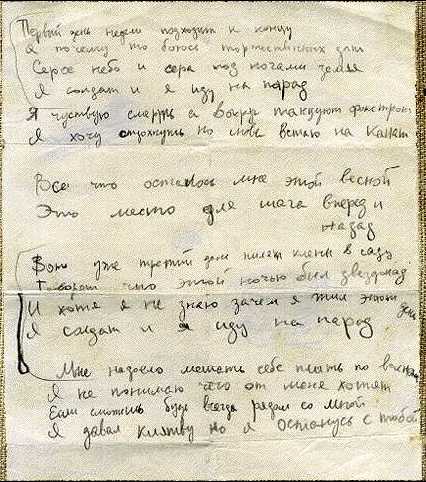 Первый день недели подходит к концу
А почему то боюсь торжественных дат
Серое небо и сера под ногами земля
Я солдат и я иду на парад
Я чуствую смерть а вокруг танцуют фокстрот
Я хочу отдохнуть но снова встаю на канат
Все что осталось мне этой весной
Это место для шага вперед и
назад
Вот уже третий день пилят клены в саду
Говорят что этой ночью был звездопад
И хотя я не знаю зачем я жил эти дни
Я солдат и я иду на парад
Мне надоело мешать себе плыть по
Я не понимаю чего от меня хотят
Если сможешь будь всегда рядом со мной
Я давал клятву но я останусь с тобой